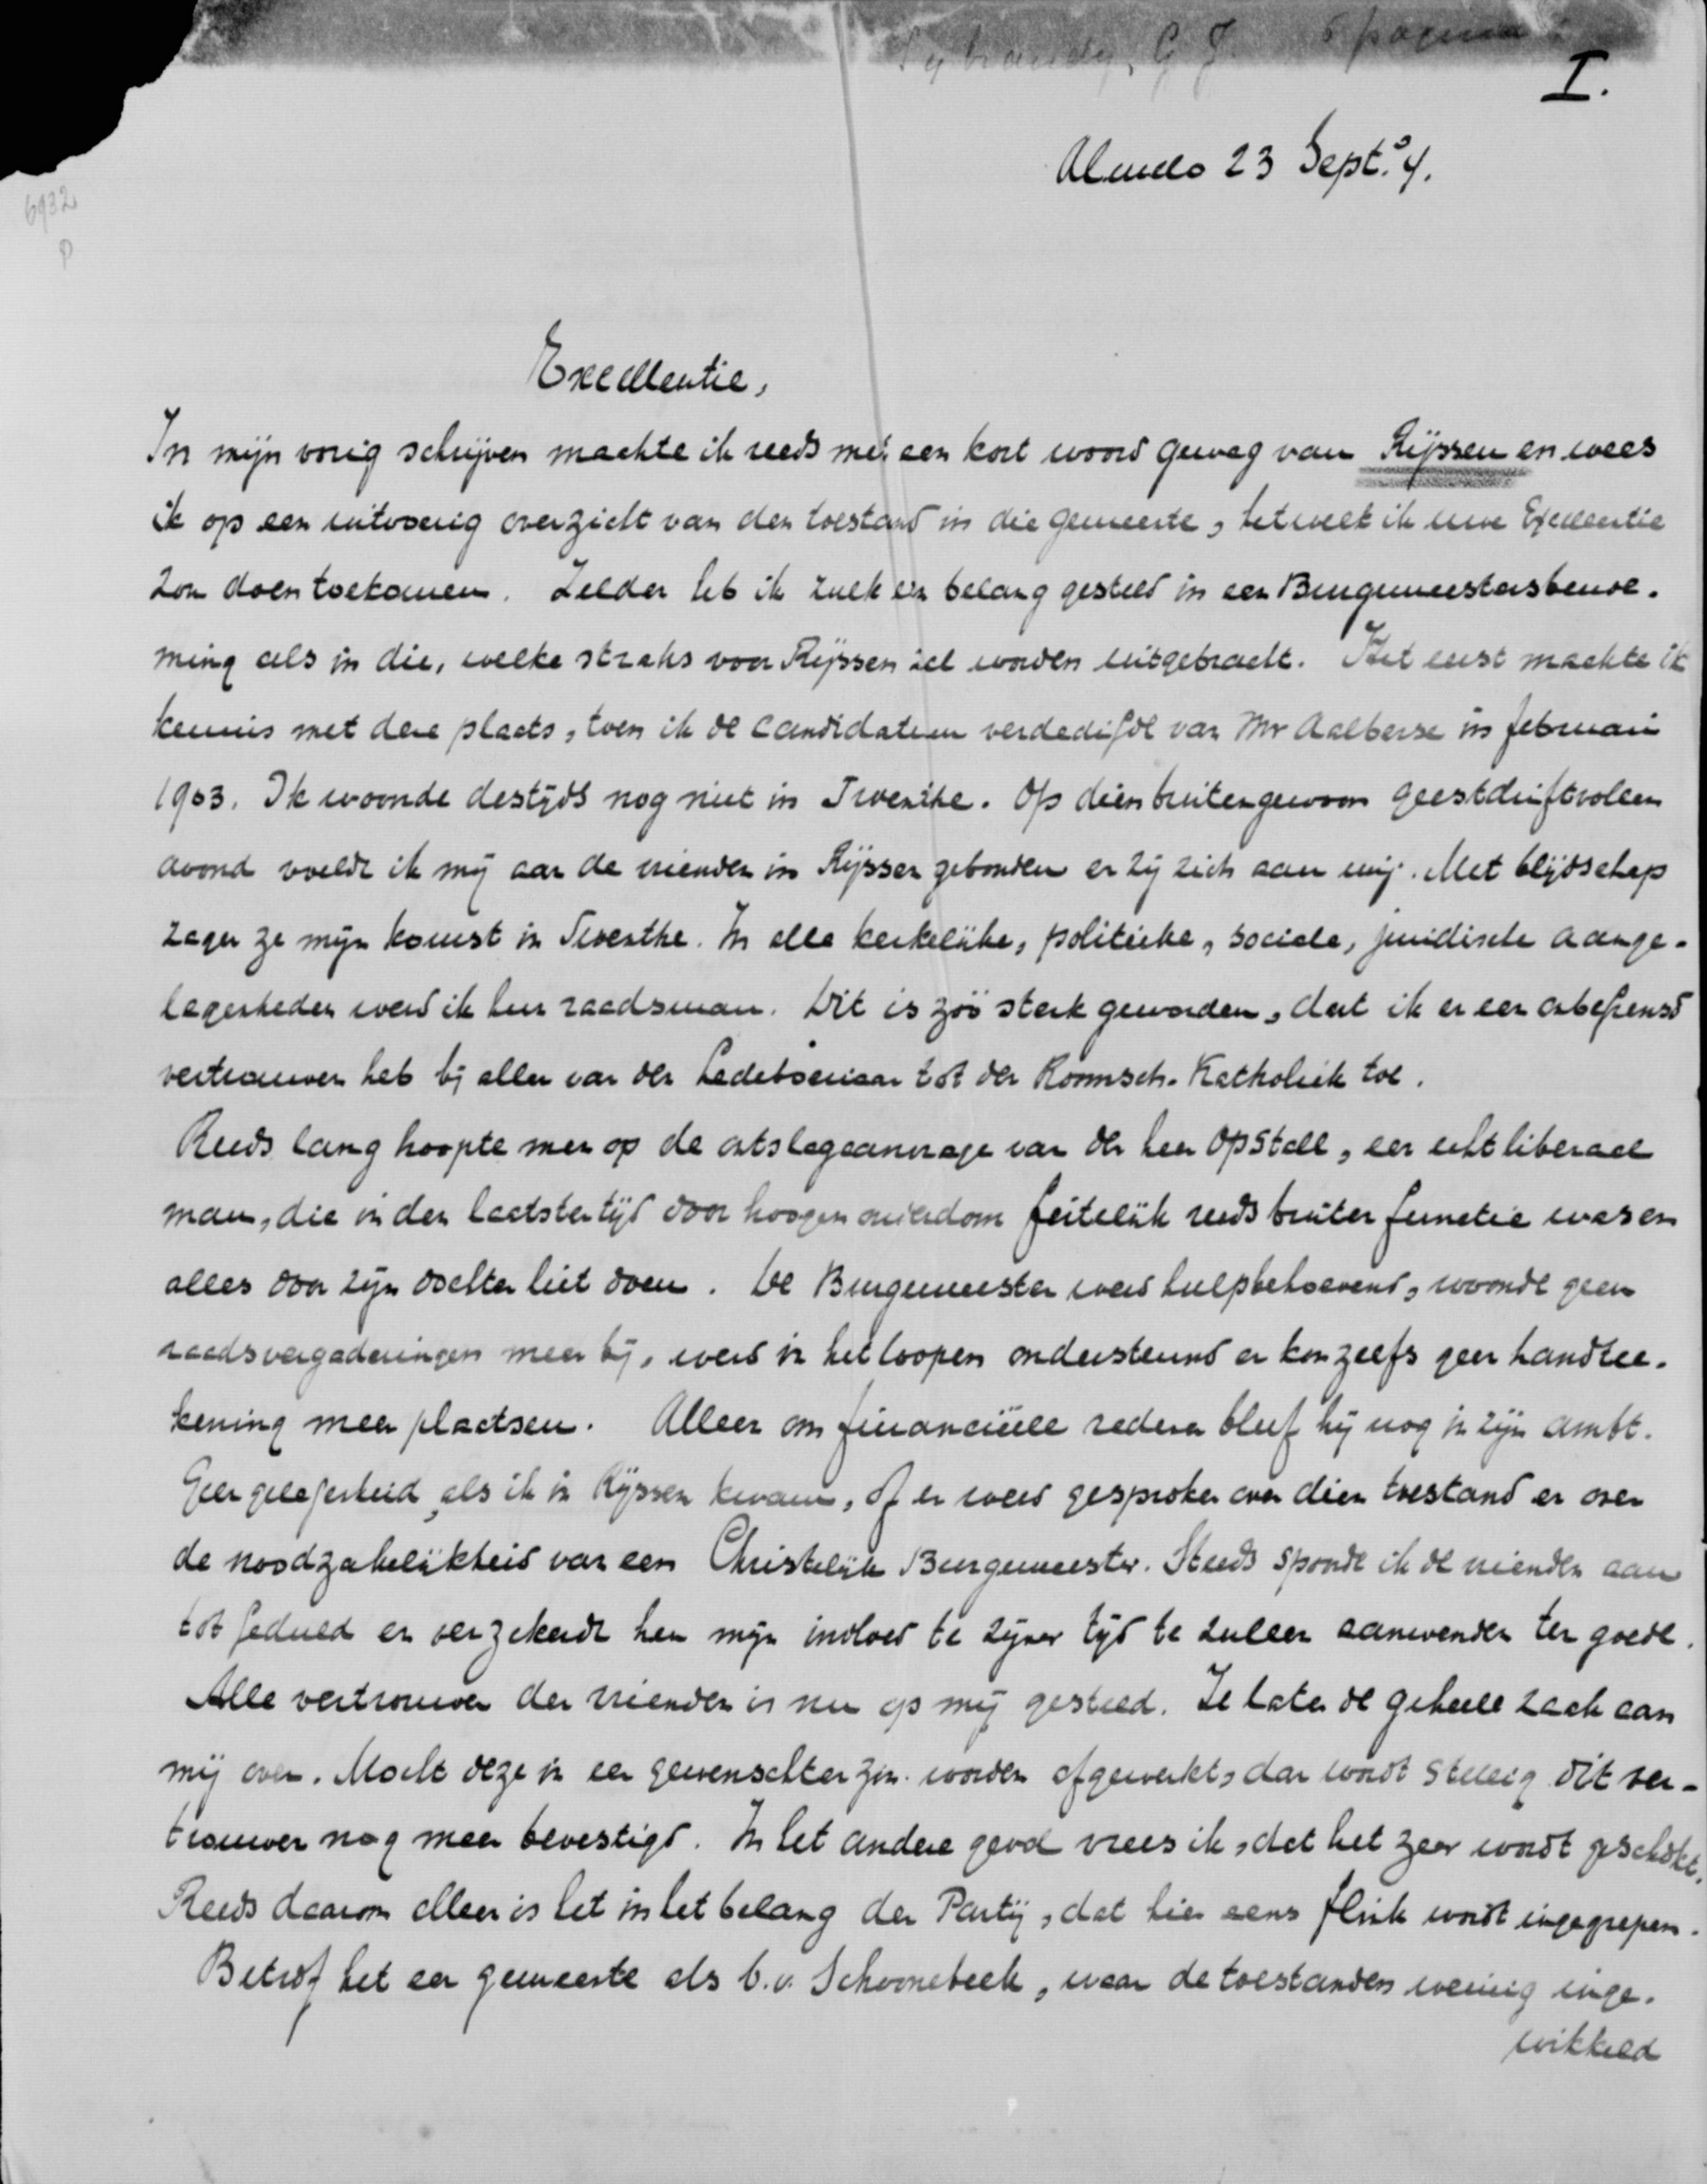 Sybrandy, G J. 6 pagina's
I.
Almelo 23 Sept. '4.
6932
P
Excellentie,
In mijn vorig schrijven maakte ik reeds met een kort woord gewag van Rijssen en wees
ik op een uitvoerig overzicht van den toestand in die gemeente, hetwelk ik uwe Excellentie
zou doen toekomen. Zelden heb ik zulk een belang gesteld in een Burgemeestersbenoe-
ming als in die, welke straks voor Rijssen zal worden uitgebracht. Het eerst maakte ik
kennis met deze plaats, toen ik de candidatuur verdedigde van Mr Aalberse in februari
1903. Ik woonde destijds nog niet in Twenthe. Op dien buitengewoon geestdriftvollen
avond voelde ik mij aan de vrienden in Rijssen gebonden en zij zich aan mij. Met blijdschap
zagen ze mijn komst in Twenthe. In alle kerkelijke, politieke, sociale, juridische aange-
legenheden werd ik hun raadsman. Dit is zóó sterk geworden, dat ik er een onbegrensd
vertrouwen heb bij allen van den Ledeboeriaan tot den Roomsch-Katholiek toe.
Reeds lang hoopte men op de ontslagaanvrage van den heer Opstall, een echt liberaal
man, die in den laatsten tijd door hoogen ouderdom feitelijk reeds buiten functie was en
alles door zijn dochter liet doen. De Burgemeester werd hulpbehoevend, woonde geen
raadsvergaderingen meer bij, werd in het loopen ondersteund en kon zelfs geen handtee-
kening meer plaatsen. Alleen om financiëele redenen bleef hij nog in zijn ambt.
Geen gelegenheid, als ik in Rijssen kwam, of er werd gesproken over dien toestand en over
de noodzakelijkheid van een Christelijk Burgemeester. Steeds spoorde ik de vrienden aan
tot geduld en verzekerde hen mijn invloed te zijner tijd te zullen aanwenden ten goede.
Alle vertrouwen der vrienden is nu op mij gesteld. Ze laten de geheele zaak aan
mij over. Mocht deze in een gewenschten zin worden afgewerkt, dan wordt stellig dit ver-
trouwen nog meer bevestigd. In het andere geval vrees ik, dat het zeer wordt geschokt.
Reeds daarom alleen is het in het belang der Partij, dat hier eens flink wordt ingegrepen.
Betrof het een gemeente als b.v. Schoonebeek, waar de toestanden weinig inge-
wikkeld